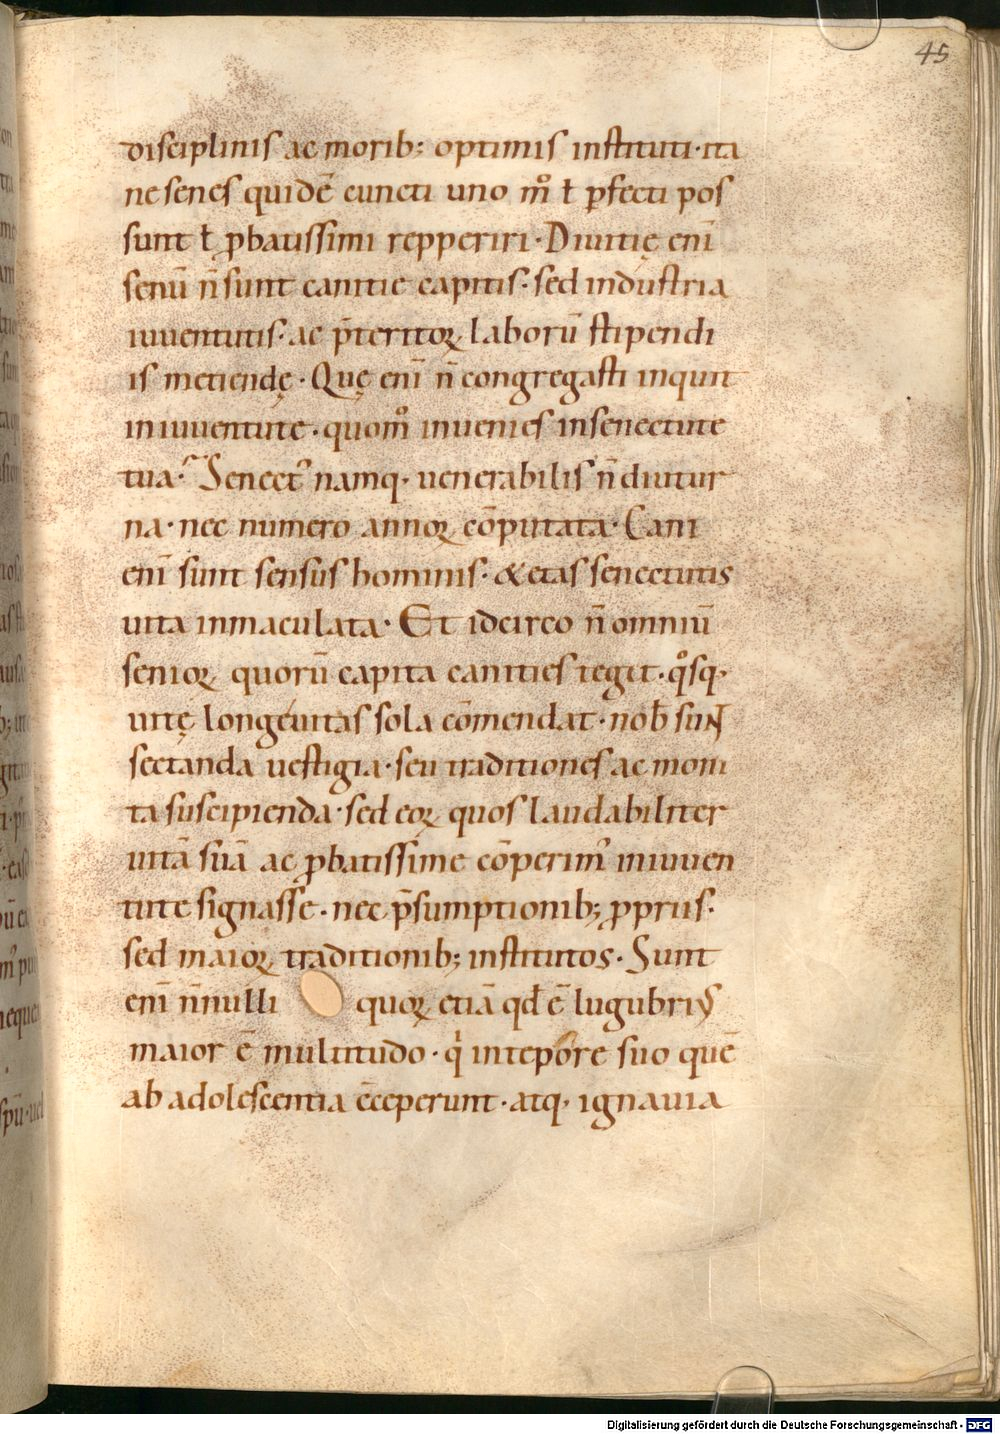 45
disciplinis ac morib; optimis instituti · ita
ne senes quidē cuncti uno mͦ ł ꝑfecti pos
sunt ł ꝓbatissimi repperiri · Diuitię enī
senū n̄ sunt canitie capitis · sed industria
iuuentutis · ac p̄teritoꝝ laborū stipendi
is metiendę · Quę enī n̄ congregasti inquit
in iuuentute · quomͦ inuenies in senectute
tua · Senect᾽ namq· uenerabilis n̄ diutur
na · nec numero annoꝝ cōputata · Cani
enī sunt sensus hominis · & etas senectutis
uita inmaculata · Et idcirco n̄ omniū
senioꝝ quorū capita canities tegit · qͦsq·
uitę longeuitas sola cōmendat · nob̄ sunt
sectanda uestigia · seu traditiones ac moni
ta suscipienda · sed eoꝝ quos laudabiliter
uitā suā ac ꝓbatissime cōperim᾽ in iuuen
tute signasse · nec p̄sumptionib; ꝓpriis ·
sed maioꝝ traditionib; institutos · Sunt
enī n̄nulli quoꝝ etiā qđ ē lugubrius
maior ē multitudo · qͥ in tepore suo quē
ab adolescentia c̄ceperunt · atq· ignauia
Digitalisierung gefördert durch die Deutsche Forschungsgemeinschaft - DFG